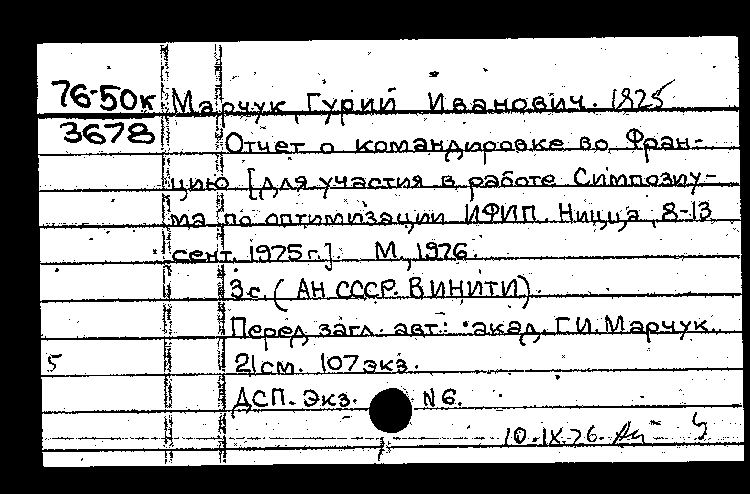 76-50к Марчук, Гурий Иванович. 1925
3678 Отчет о командировке во Фран-
цию [для участия в работе Симпозиу-
ма по оптимизации ИФИП. Ницца, 8-13
сент. 1975 г.]. М., 1976.
3 с. (АН СССР. ВИНИТИ).
Перед загл. авт.: акад. Г.И. Марчук.
5 21 см. 107 экз.
ДСП. Экз. N 6.
10.IX.76.